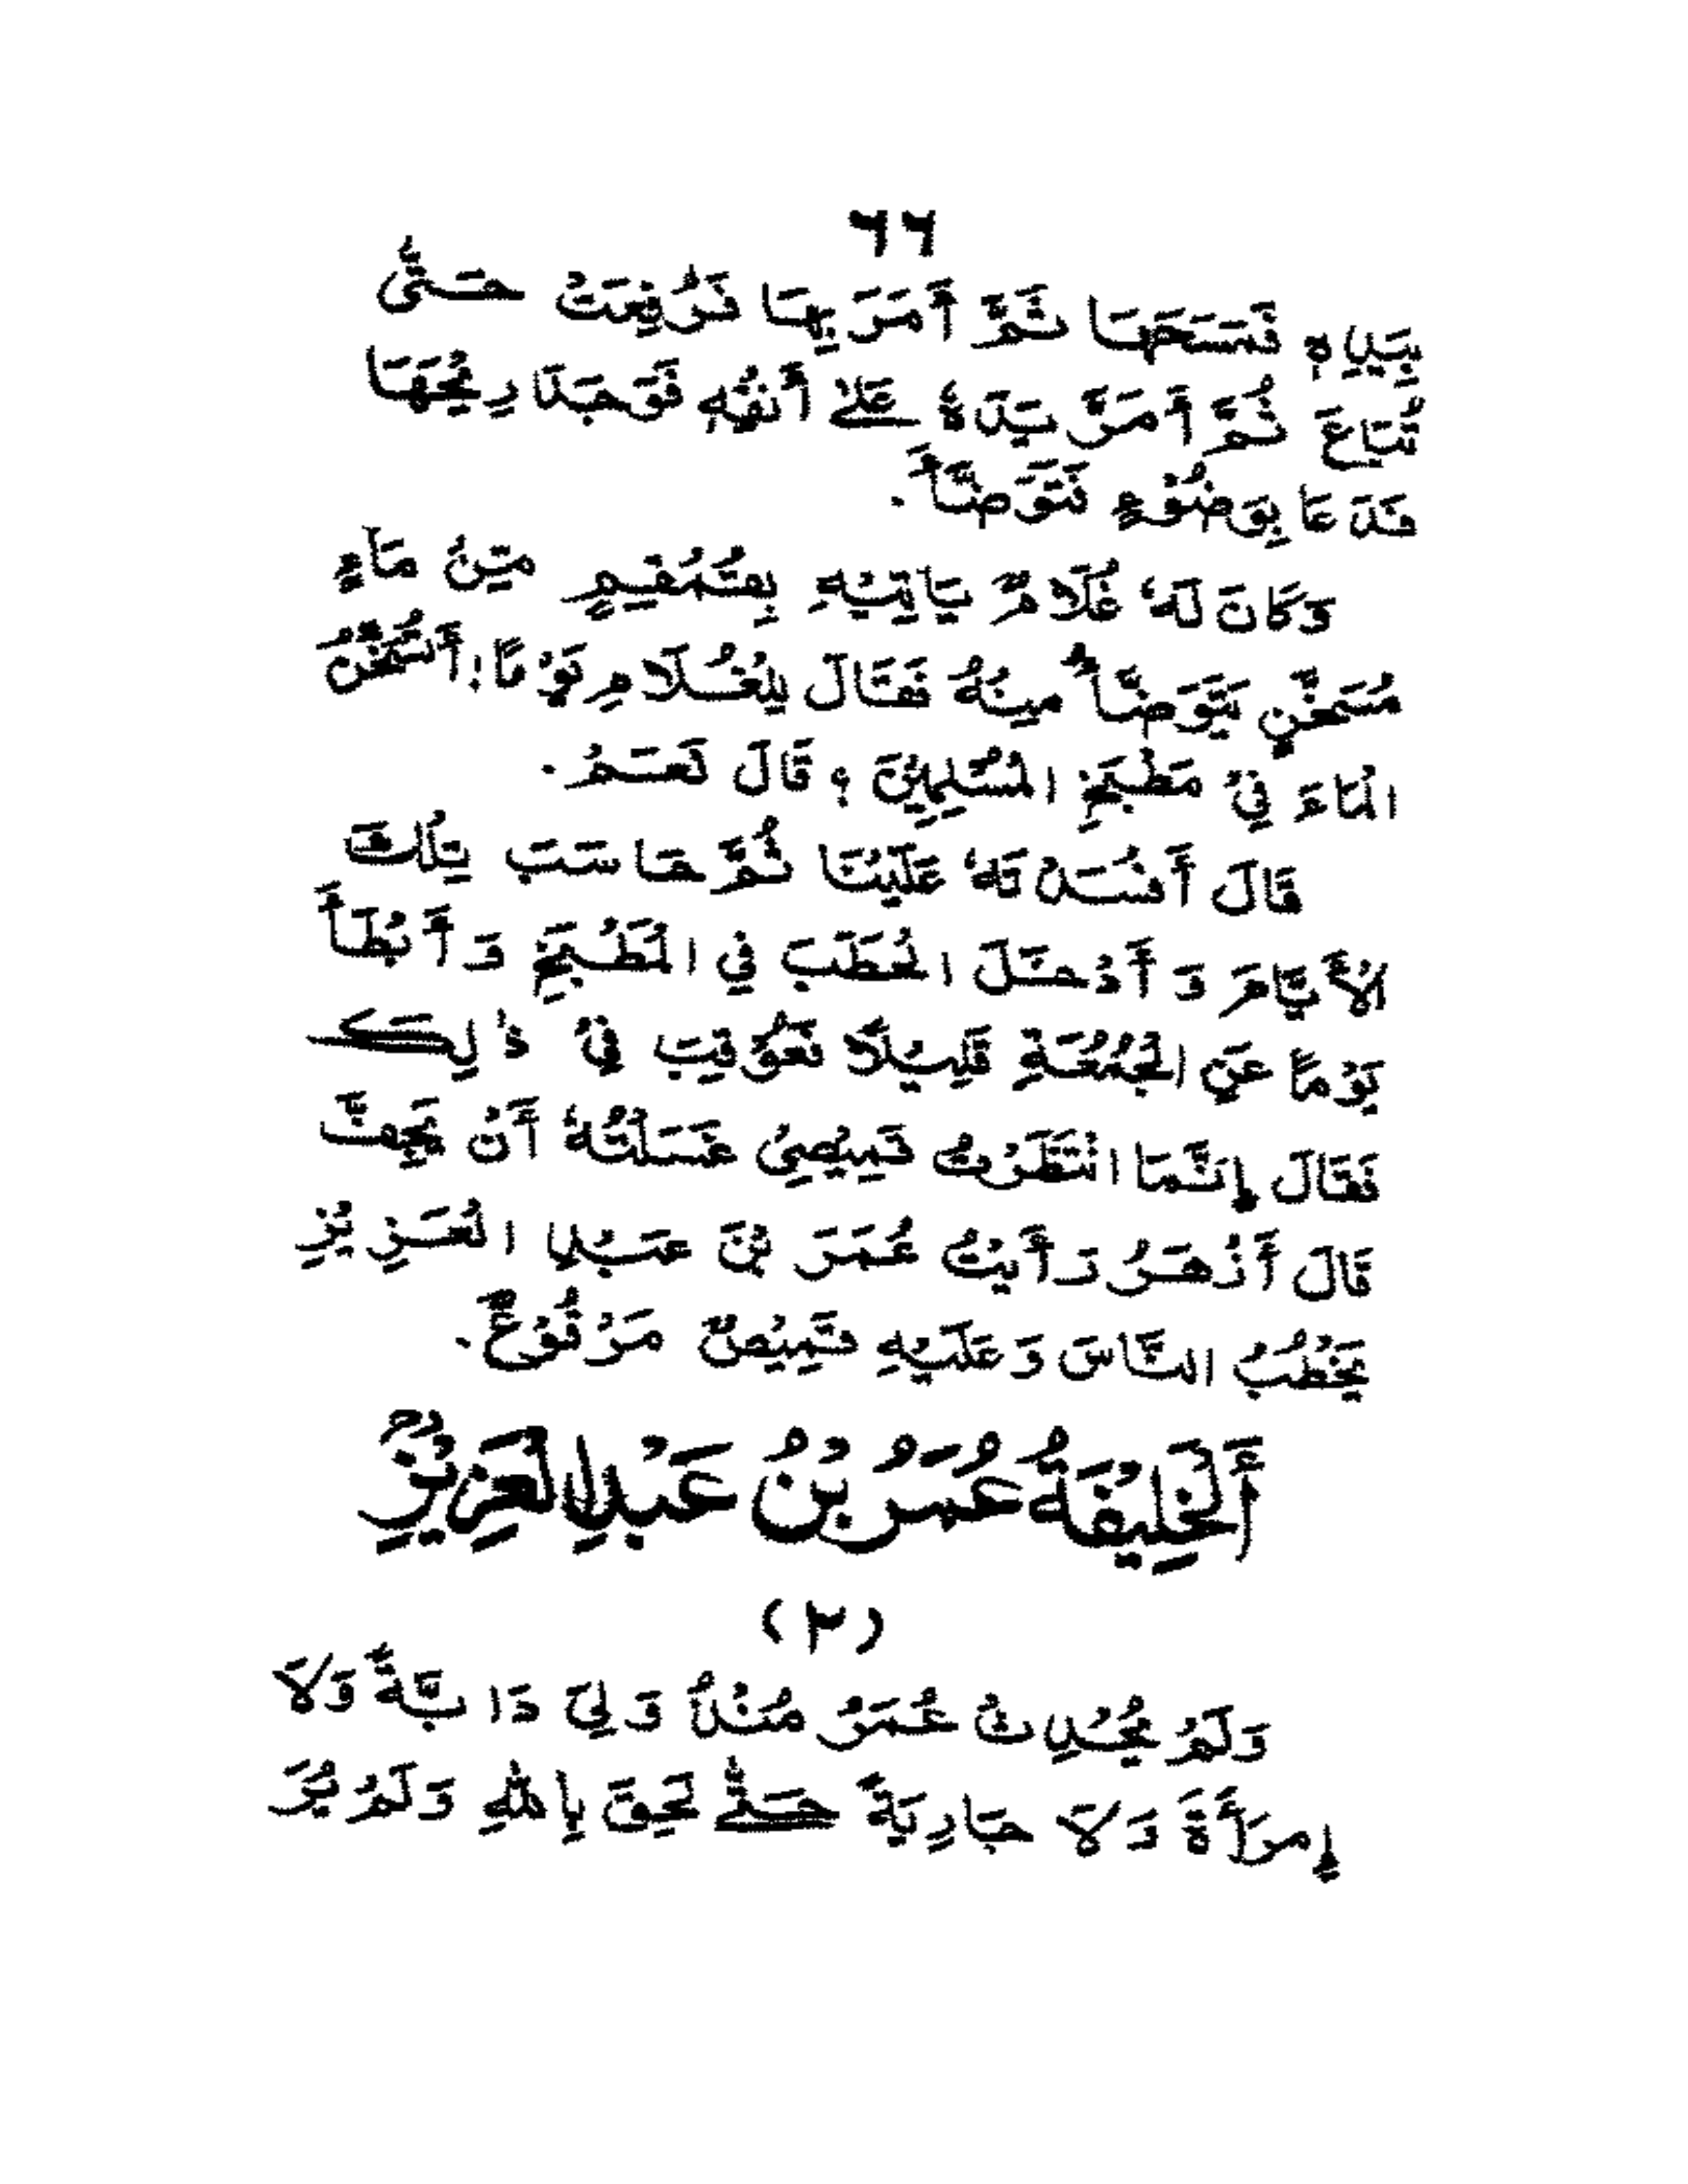 ٦٦
بِيَدِهِ فَمَسَحَهَا ثُمَّ أَمَرَ بِهَا فَرُفِعَتْ حَتّٰى
تُبَاعَ ثُمَّ أَمَرَّ يَدَهٗ عَلٰى أَنْفِهٖ فَوَجَدَ رِيْحَهَا
فَدَعَا بِوَضُوْءٍ فَتَوَضَّأَ.
وَكَانَ لَهٗ غُلَامٌ يَأْتِيْهِ بِقُمْقُمٍ مِّنْ مَاءٍ
مُسَخَّنٍ يَتَوَضَّأُ مِنْهُ فَقَالَ لِلْغُلَامِ يَوْمًا: أَتُسَخِّنُ
الْمَاءَ فِيْ مَطْبَخِ الْمُسْلِمِيْنَ؟ قَالَ نَعَمْ.
قَالَ أَفْسَدْتَهٗ عَلَيْنَا ثُمَّ حَاسَبَ تِلْكَ
الْأَيَّامَ وَأَدْخَلَ الْحَطَبَ فِي الْمَطْبَخِ وَأَبْطَأَ
يَوْمًا عَنِ الْجُمُعَةِ قَلِيْلًا فَعُوْتِبَ فِيْ ذٰلِكَ
فَقَالَ إِنَّمَا انْتَظَرْتُ قَمِيْصِيْ غَسَلْتُهٗ أَنْ يَجِفَّ
قَالَ أَزْهَرُ رَأَيْتُ عُمَرَ بْنَ عَبْدِ الْعَزِيْزِ
يَخْطُبُ النَّاسَ وَعَلَيْهِ قَمِيْصٌ مَرْقُوْعٌ.
أَلْخَلِيْفَةُ عُمَرُ بْنُ عَبْدِ الْعَزِيْزِ
(٢)
وَلَمْ يُحْدِثْ عُمَرُ مُنْذُ وَلِيَ دَابَّةً وَلَا
إِمْرَأَةً وَلَا جَارِيَةً حَتّٰى لَحِقَ بِاللهِ وَلَمْ يُرَ